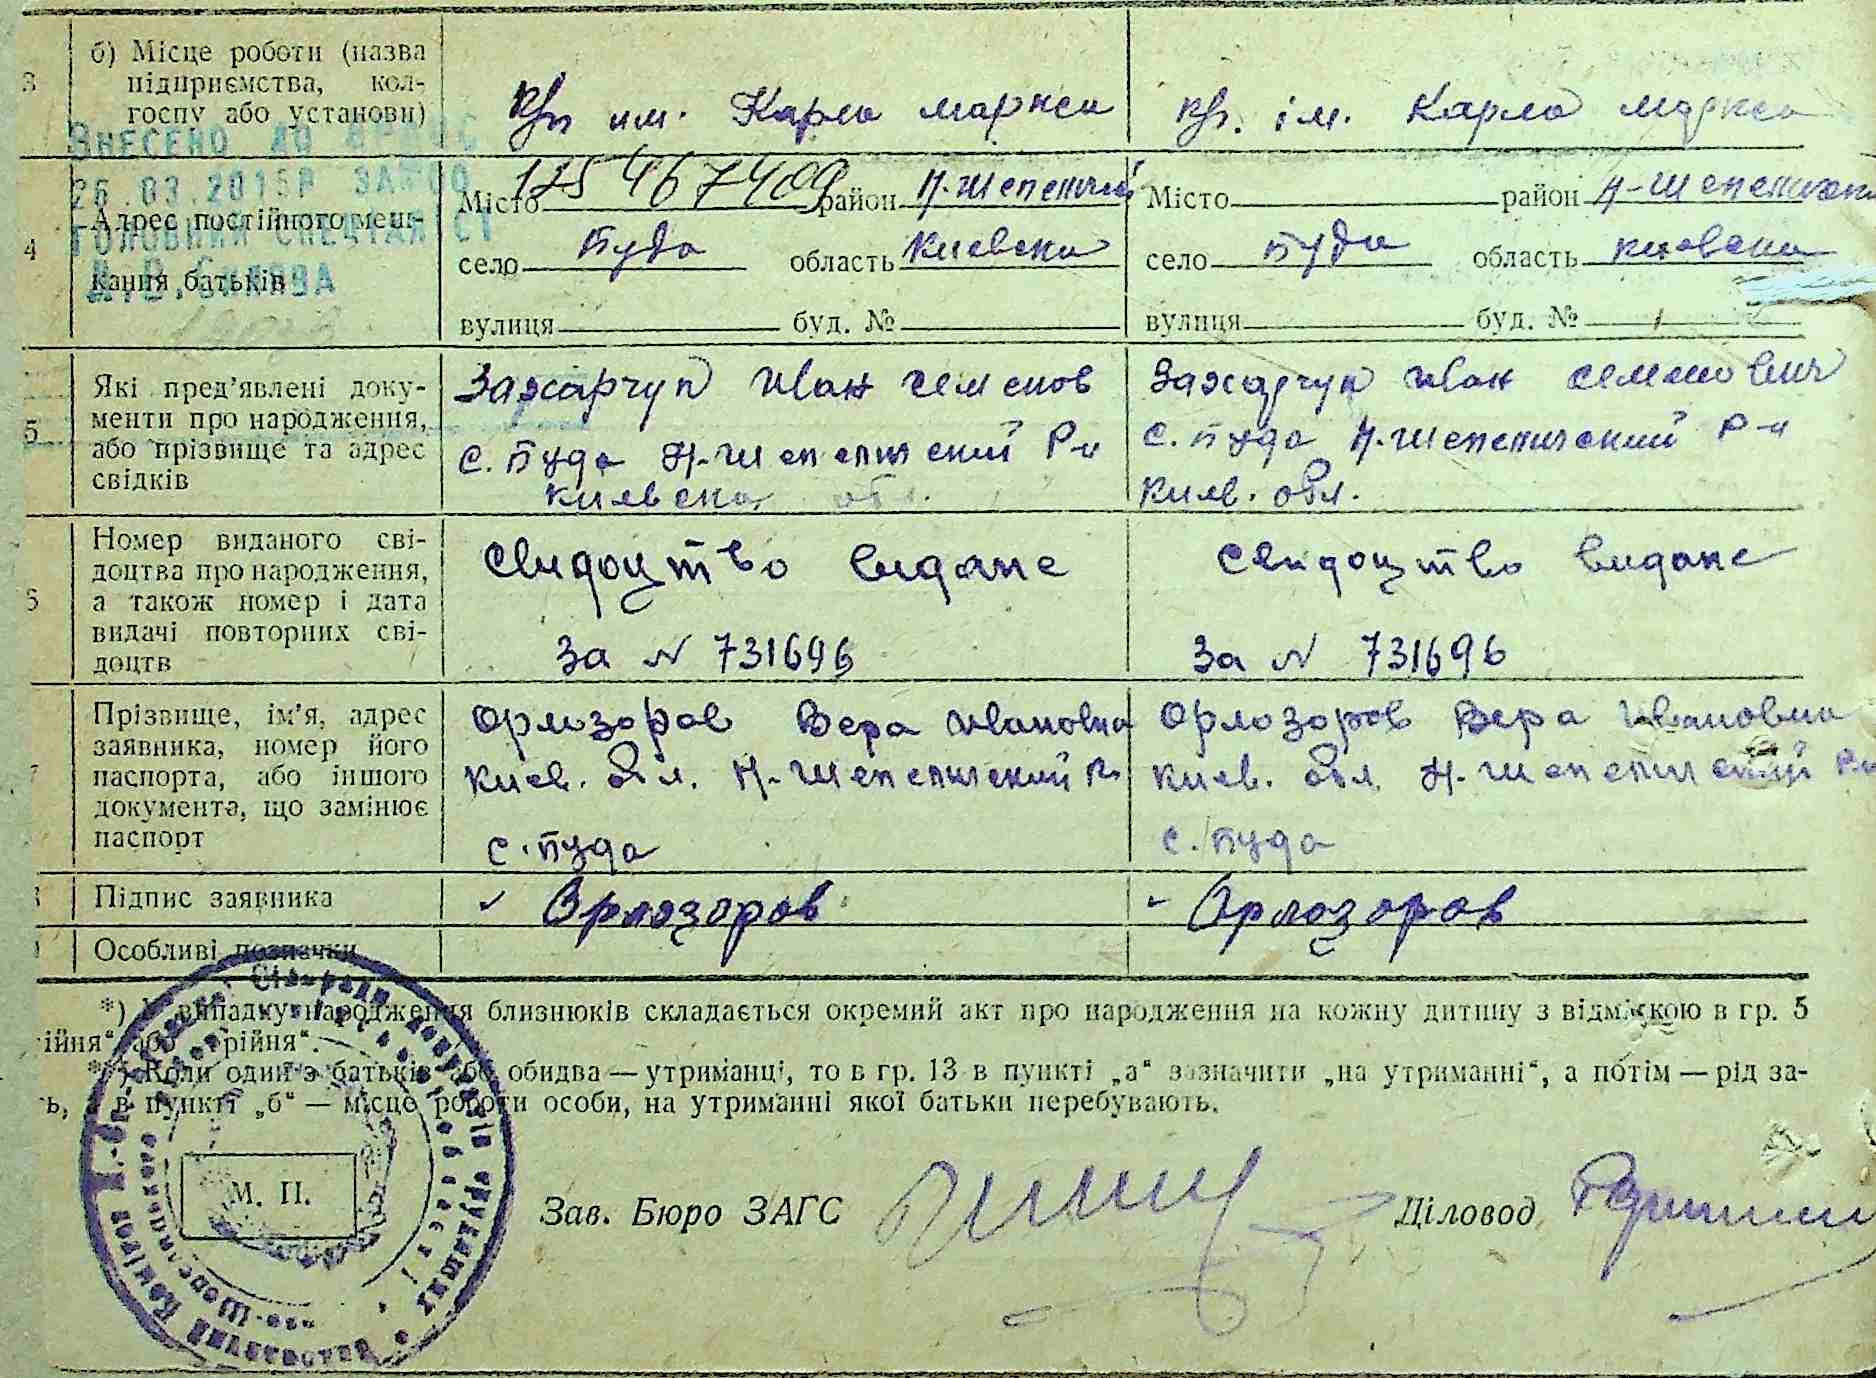 3 б) Місце роботи (назва
підприємства, кол-
госпу або установи)
им. Карла маркса
ім. Карло маркса
ВНЕСЕНО ДО
26.03.2015Р
ГОЛОВНИЙ СПЕЦІАЛІСТ
4 Адрес постійного меш-
кания батьків
Місто 1254967409 район Н-Шепеличї
село Буда область Киевска
вулиця буд. №
Місто район Н-Шепелички
село Буда область киевска
вулиця буд. №
5 Які пред'явлені доку-
менти про народження,
або прізвище та адрес
свідків
Захарчук Иван Семенов
с. Буда Н-Шепеличский Р-н
киевска обл.
Захарчук Иван Семенович
с. Буда Н-Шепеличский Р-н
Киев. обл.
6 Номер виданого сві-
доцтва про народження,
а також номер і дата
видачі повторних сві-
доцтв
Свидоцтво видане
за N 731696
Свидоцтво видане
за N 731696
7 Прізвище, ім'я, адрес
заявника, номер його
паспорта, або іншого
документа, що замінює
паспорт
Орлозоров Вера Ивановна
Киев. обл. Н-Шепеличский Рн
с. Буда
Орлозоров Вера Ивановна
Киев. обл. Н-Шепеличский Рн
с. Буда
Підпис заявника
Орлозоров
Орлозоров
Особливі позначки
*) У випадку народження близнюків складається окремий акт про народження на кожну дитину з відміткою в гр. 5
ійня" або "трійня".
**) Коли один з батьків або обидва — утриманці, то в гр. 13 в пункті „а" зазначити „на утриманні", а потім — рід за-
ь, а в пункті „б" — місце роботи особи, на утриманні якої батьки перебувають.
М. П.
Зав. Бюро ЗАГС
Діловод